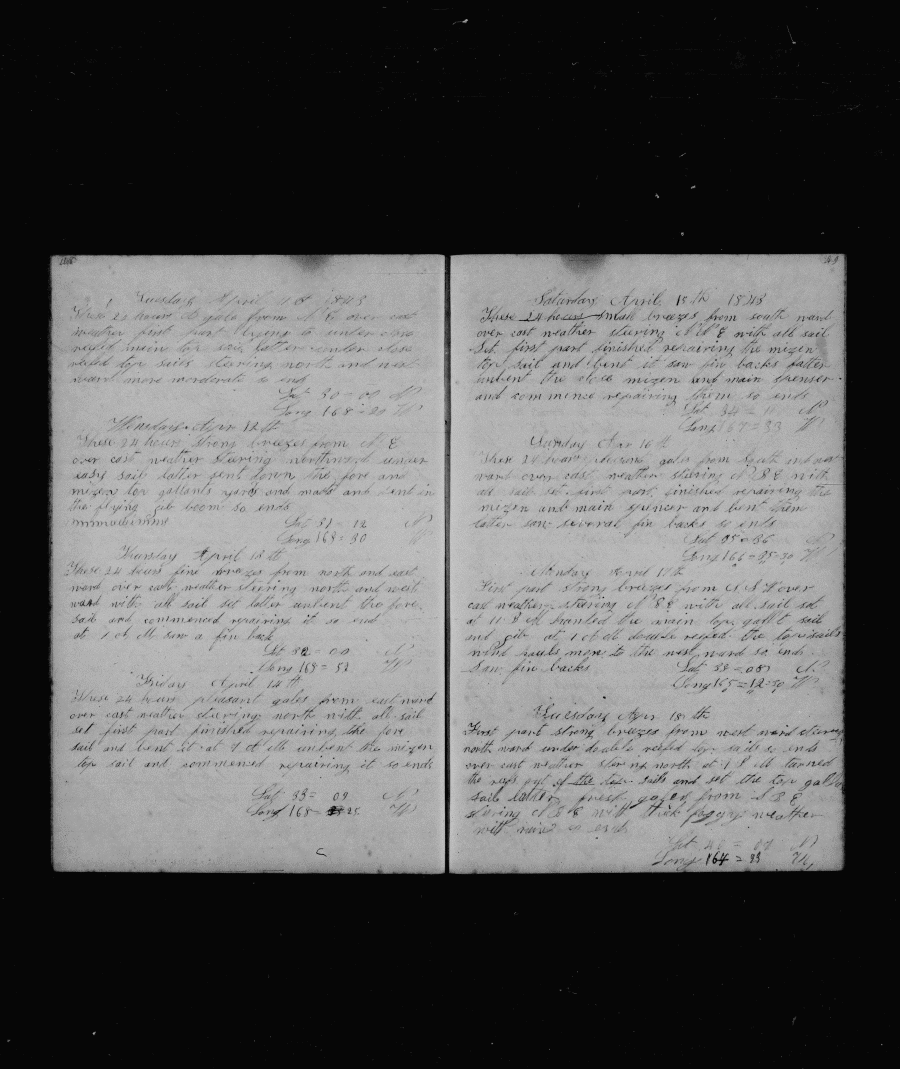 Tuesday April 1843
These 24 hours gale from N E over cast
weather first part lying to under close
reefed main top sail latter under close
reefed top sails steering north and west
ward more moderate so ends
Lat 30 = 00 N
Long 168 = 20 W
Wensday Apr 12 th
These 24 hours strong breezes from N E
over cast weather steering northward under
easy sail latter sent down the fore and
mizen top gallants yards and masts and sent in
the flying jib boom so ends
Lat 31 = 12 N
Long 169 = 30 W
Thursday April 13 th
These 24 hours fine breezes from north and east
ward over cast weather steering north and west
ward with all sail set latter unbent the fore
sail and commenced repairing it so end
at 1 of M saw a fin back
Lat 32 = 00 N
Long 169 = 53 W
Friday April 14 th
These 24 hours pleasant gales from east ward
over cast weather steering north with all sail
set first part finished repairing the fore
sail and bent it at 4 of M unbent the mizen
top sail and commenced repairing it so ends
Lat 33 = 09 N
Long 168 = 25 W
Saturday April 15 th 1843
These 24 hours small breezes from south ward
over cast weather steering N N E with all sail
Set first part finished repairing the mizen
top sail and bent it saw fin backs latter
unbent the mizen and main spenser
and commence repairing them so ends
Lat 34 = 11 N
Long 167 = 33 W
Sunday Apr 16 th
These 24 hours strong gales from South and east
ward over cast weather steering N E with
all sail set first part finished repairing the
mizen and main spencer and bent them
latter saw several fin backs so ends
Lat = 36 N
Long 166 = 05 = 30 W
Monday April 17 th
First part strong breezes from S S W over
cast weather steering N E with all sail set
at 11 P M handed the main top gallt sail
and gib at 1 of M double reefed the top sails
wind hauls more to the west ward so ends
Saw fin backs Lat 38 = 08 N
Long 165 = 12 = 30 W
Tuesday Apr 18 th
First part strong breezes from west ward steering
north ward under double reefed top sail so ends
over cast weather stering north at 1 P M turned
the reefs out of the top sails and set the top gallan
sails latter fresh gales from S E
stering N E with thick foggy weather
with rain so ends
Lat 40 = N
Long 164 = 33 W